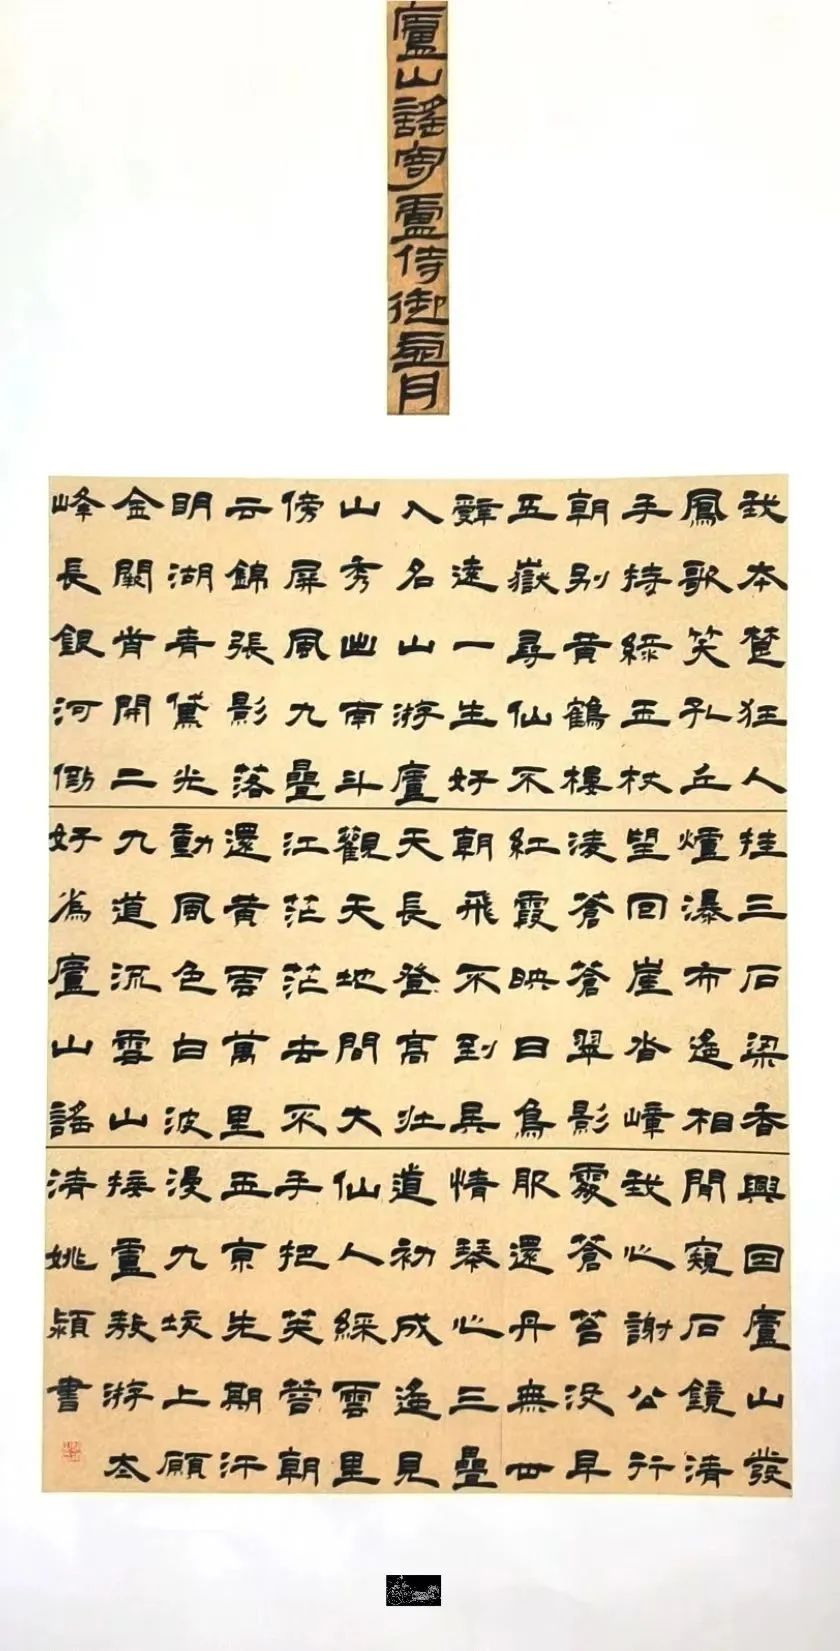 廬山謠寄盧侍御虛舟
我本楚狂人
鳳歌笑孔丘
手持綠玉杖
朝別黃鶴樓
五嶽尋仙不
辭遠一生好
入名山游廬
山秀出南斗
傍屏風九疊
云錦張影落
明湖青黛光
金闕前開二
峰長銀河倒
挂三石梁香
爐瀑布遙相
望回崖沓嶂
凌蒼蒼翠影
紅霞映日鳥
朝飛不到吳
天長登高壯
觀天地間大
江茫茫去不
還黃雲萬里
動風色白波
九道流雪山
好為廬山謠
興因廬山發
閒窺石鏡清
我心謝公行
處蒼苔沒早
服還丹無世
情琴心三疊
道初成遙見
仙人綵雲里
手把芙蓉朝
玉京先期汗
漫九垓上願
接盧敖游太
清姚穎書